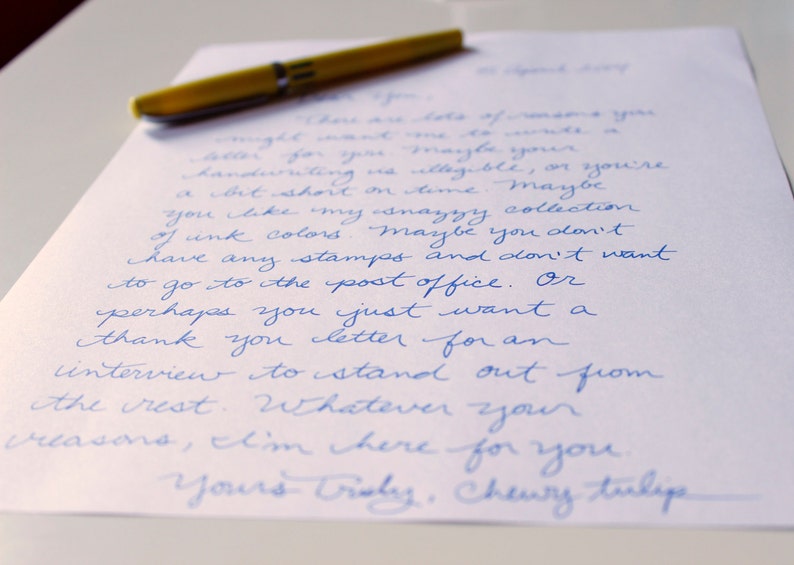 April
Dear You,
There are lots of reasons you
might want me to write a
letter for you. Maybe your
handwriting is illegible, or you're
a bit short on time. Maybe
you like my snazzy collection
of ink colors. Maybe you don't
have any stamps and don't want
to go to the post office. Or
perhaps you just want a
thank you letter for an
interview to stand out from
the rest. Whatever your
reasons, I'm here for you.
Yours Truly, Chewy tulip